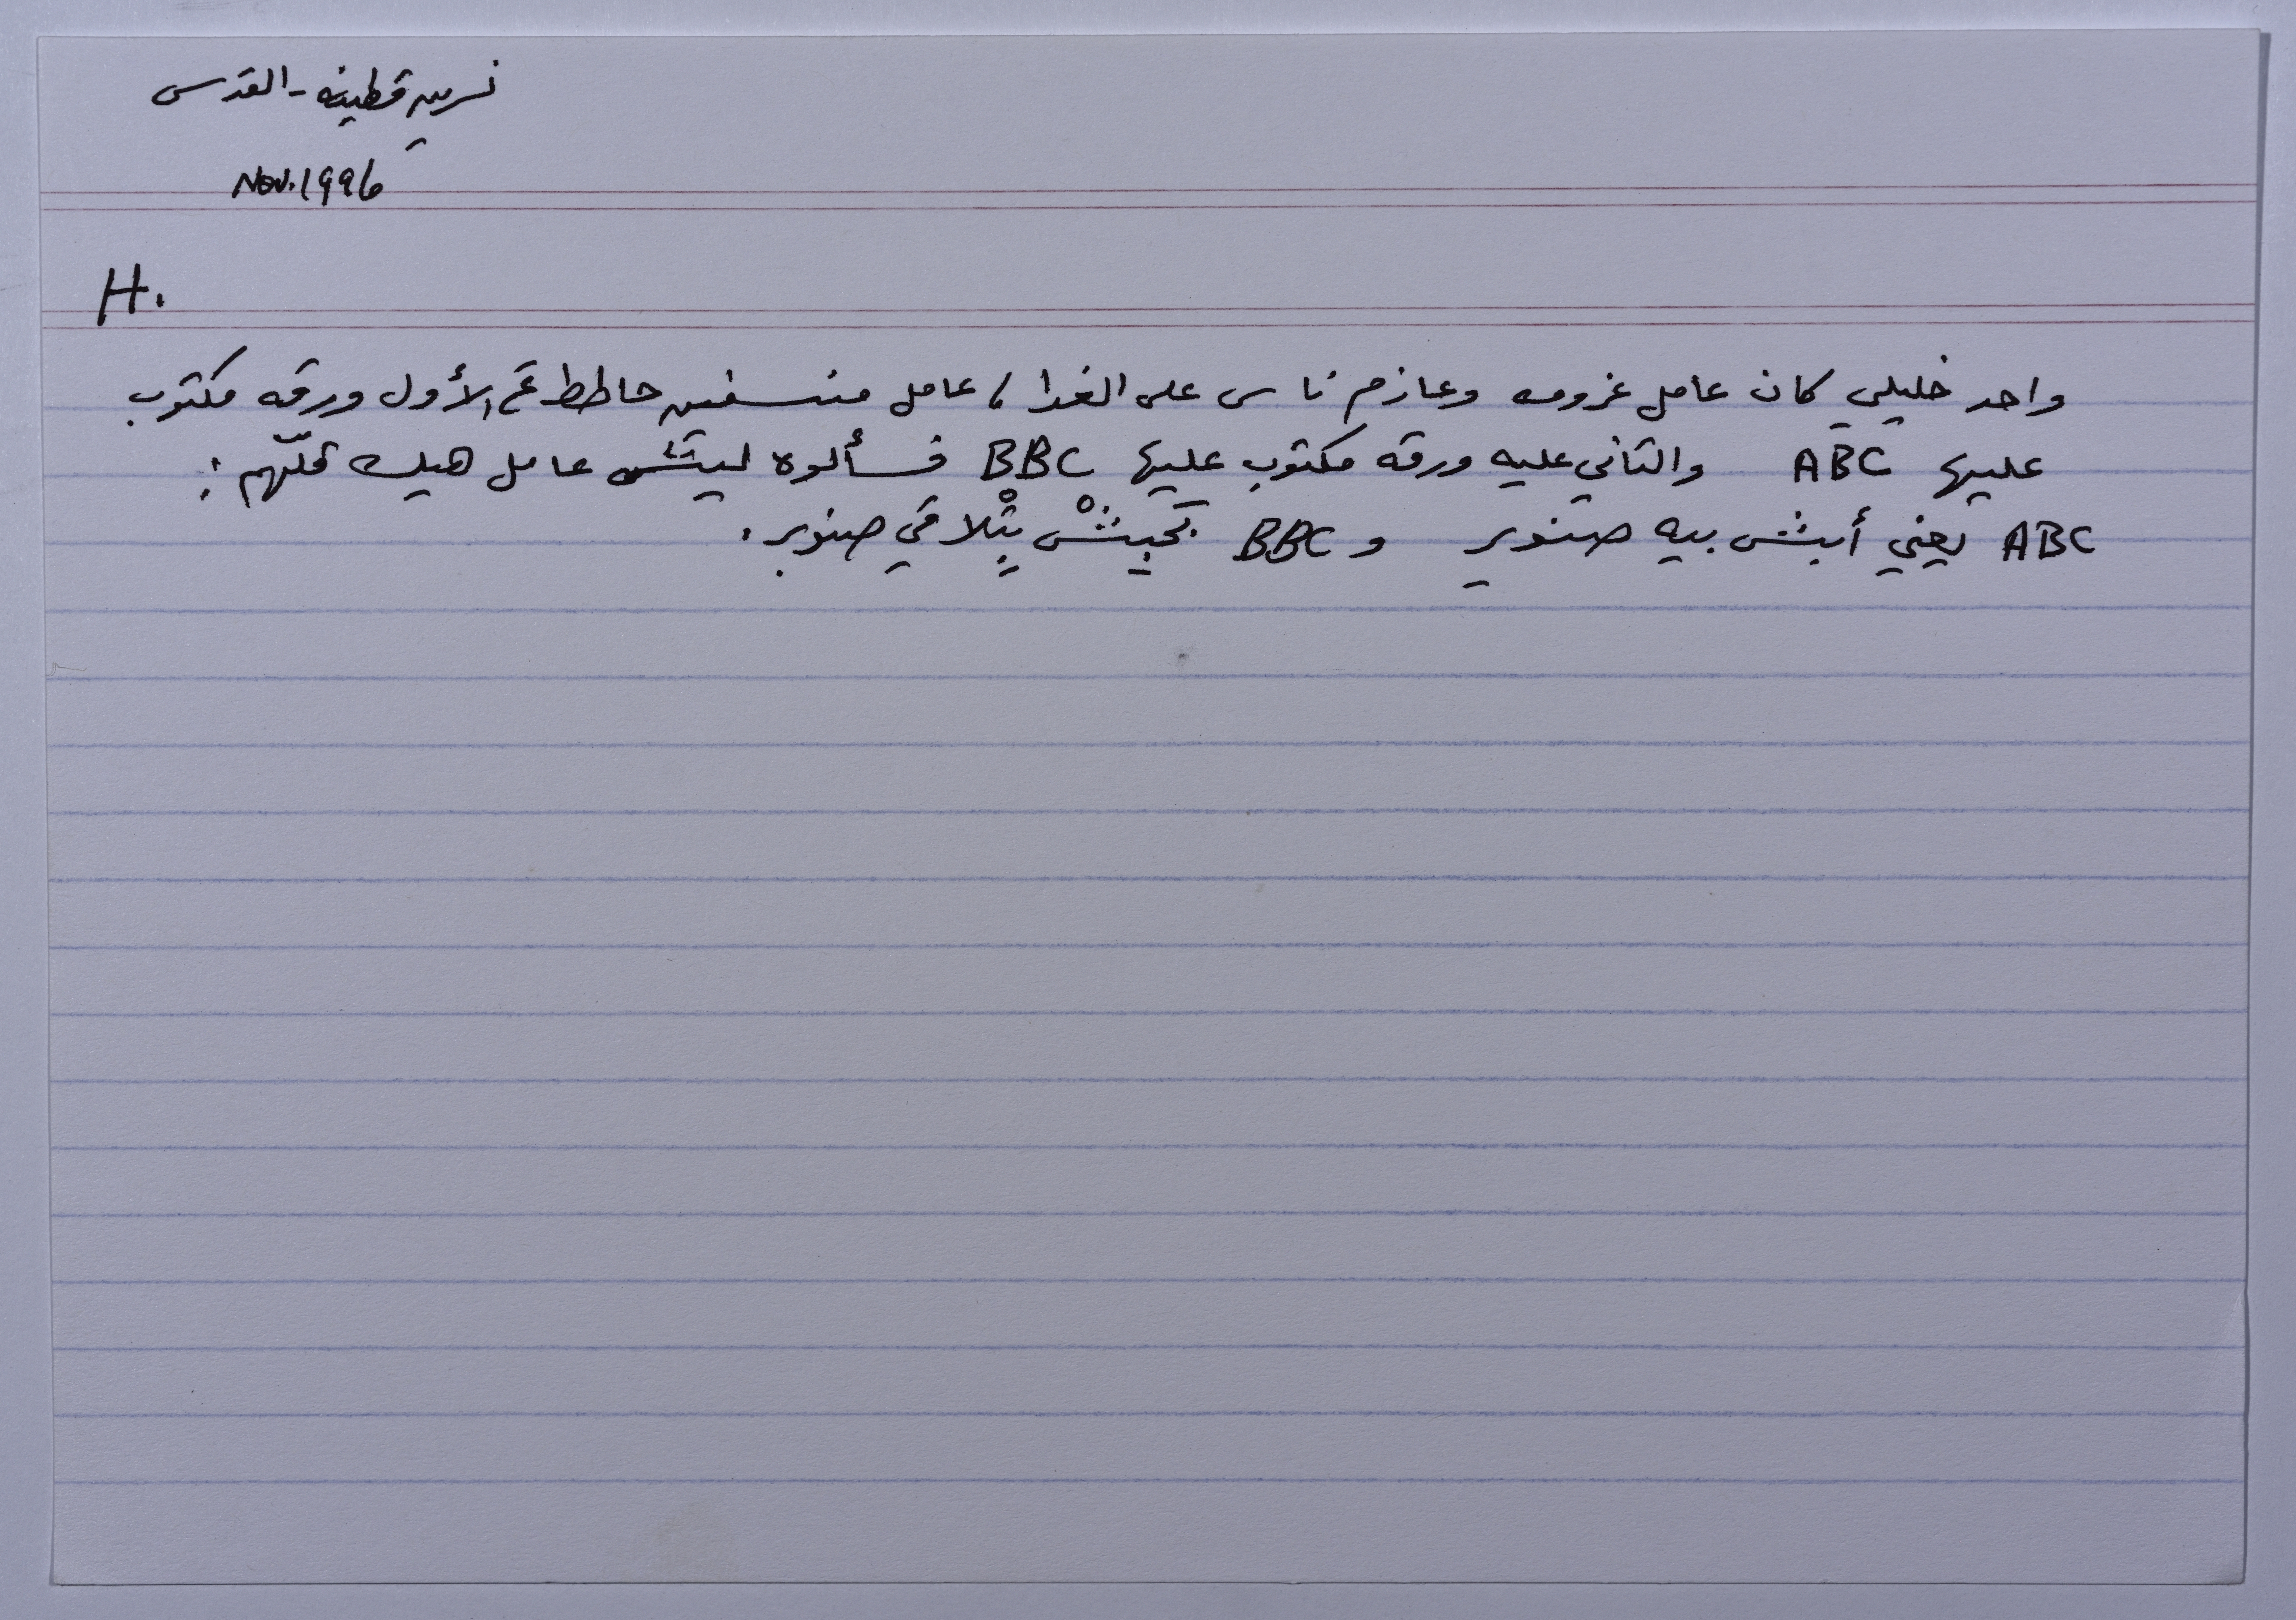 نسرين قطينه - القدس
Nov. 1996
H.
واحد خليلي كان عامل عزومه وعازم ناس على الغدا، عامل منسفين حاطط عَ الأول ورقه مكتوب
عليها ABC والتاني عليه ورقه مكتوب عليها BBC فسألوه ليش عامل هيك قلّهم:
ABC يعني أبش بيه صنوبر و BBC بحبشْ بِتْلاقي صنوبر.